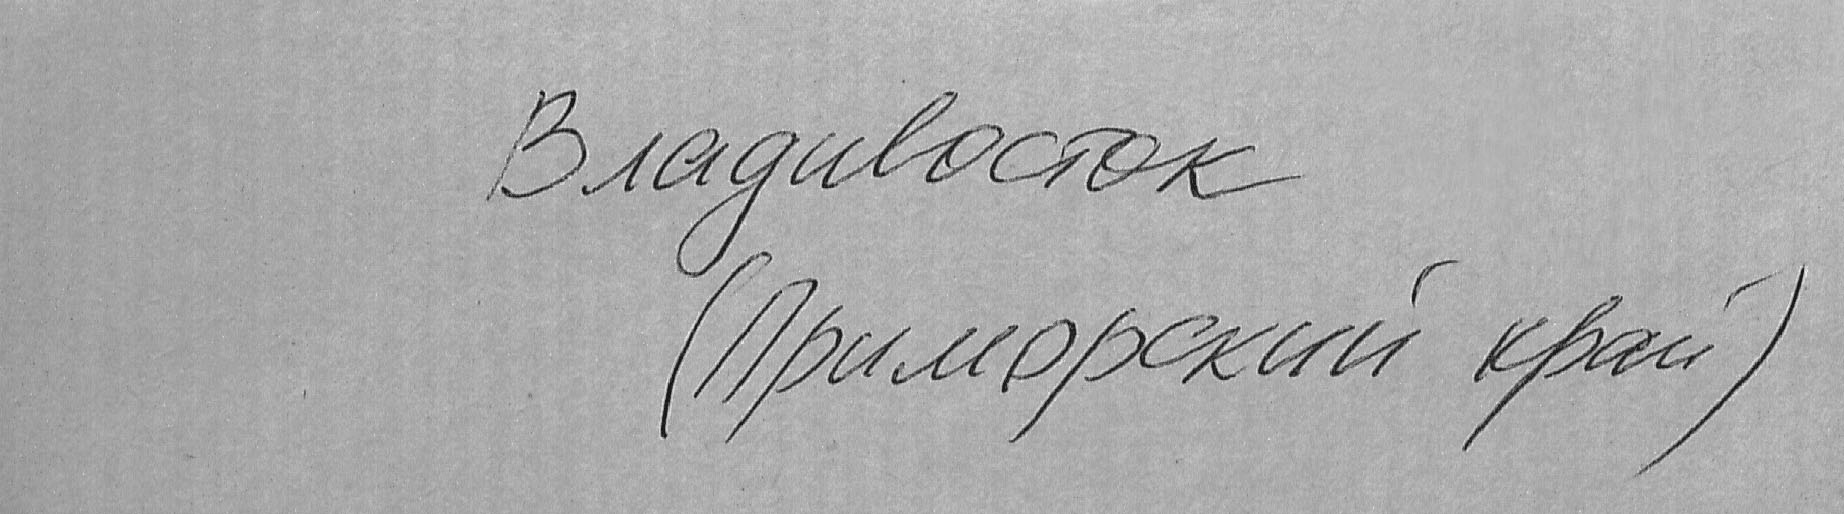 Владивосток
(Приморский край)